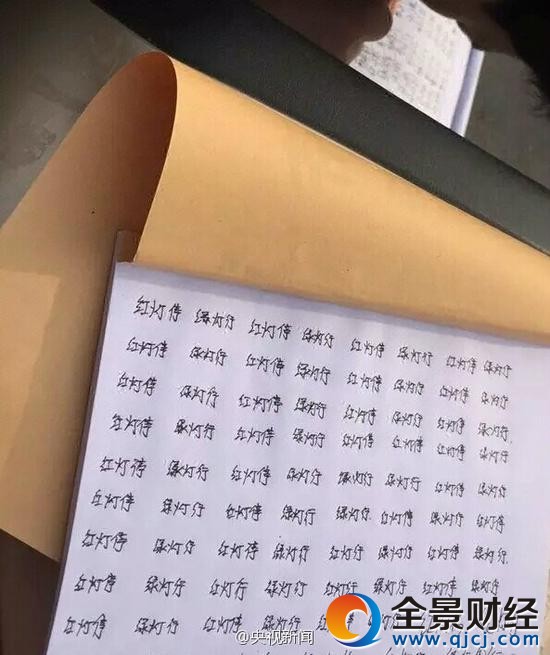 红灯停 绿灯行 红灯停 绿灯行 红灯停 绿灯行 红灯停 绿灯行
红灯停 绿灯行 红灯停 绿灯行 红灯停 绿灯行 红灯停 绿灯行
红灯停 绿灯行 红灯停 绿灯行 红灯停 绿灯行 红灯停 绿灯行
红灯停 绿灯行 红灯停 绿灯行 红灯停 红灯停 红灯停 绿灯行
红灯停 绿灯行 红灯停 绿灯行 绿灯行 绿灯行 红灯停 绿灯行
红灯停 绿灯行 红灯停 绿灯行 绿灯行 红灯停 绿灯行 红灯停
红灯停 绿灯行 红灯停 绿灯行 红灯停 绿灯行 红灯停 绿灯行
红灯停 绿灯行 红灯行 绿灯行 红灯行 绿灯行 红灯停 绿灯行
红灯停 绿灯行 红灯停
@央视新闻
全景财经
www.qjcj.com